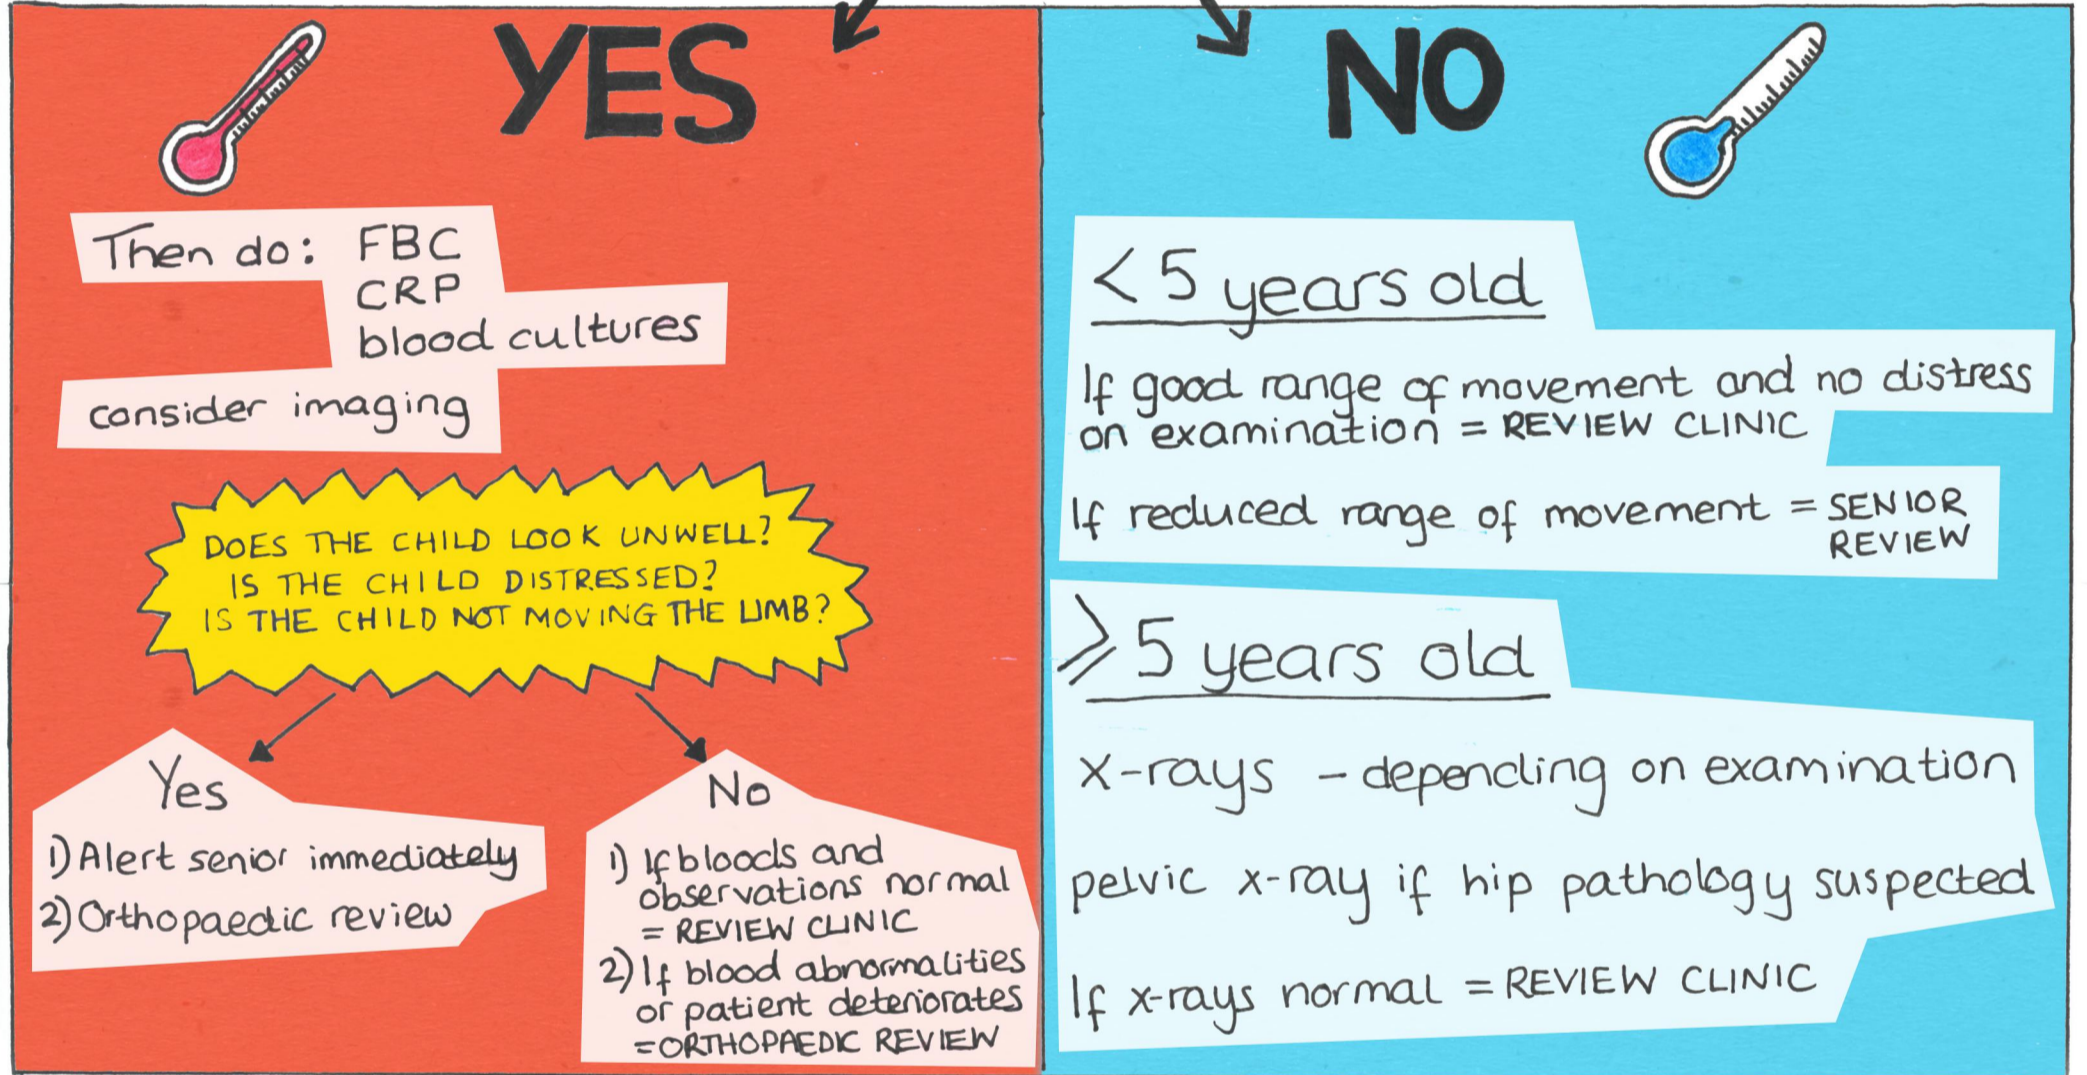 YES
Then do: FBC
CRP
blood cultures
consider imaging
DOES THE CHILD LOOK UNWELL?
IS THE CHILD DISTRESSED?
IS THE CHILD NOT MOVING THE LIMB?
Yes
1) Alert senior immediately
2) Orthopaedic review
No
1) If bloods and
observations normal
= REVIEW CLINIC
2) If blood abnormalities
or patient deteriorates
= ORTHOPAEDIC REVIEW
NO
< 5 years old
If good range of movement and no distress
on examination = REVIEW CLINIC
If reduced range of movement = SENIOR
REVIEW
⩾ 5 years old
x-rays - depending on examination
pelvic x-ray if hip pathology suspected
If x-rays normal = REVIEW CLINIC